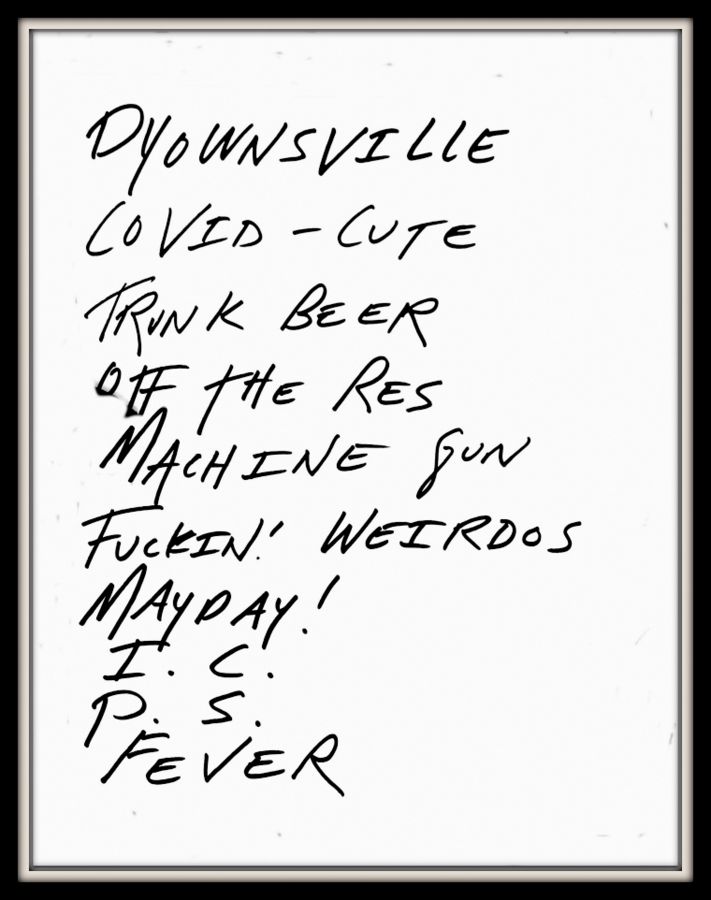 DYOWNSVILLE
COVID - CUTE
TRUNK BEER
OFF THE RES
MACHINE GUN
FUCKIN! WEIRDOS
MAYDAY!
I. C.
P. S.
FEVER